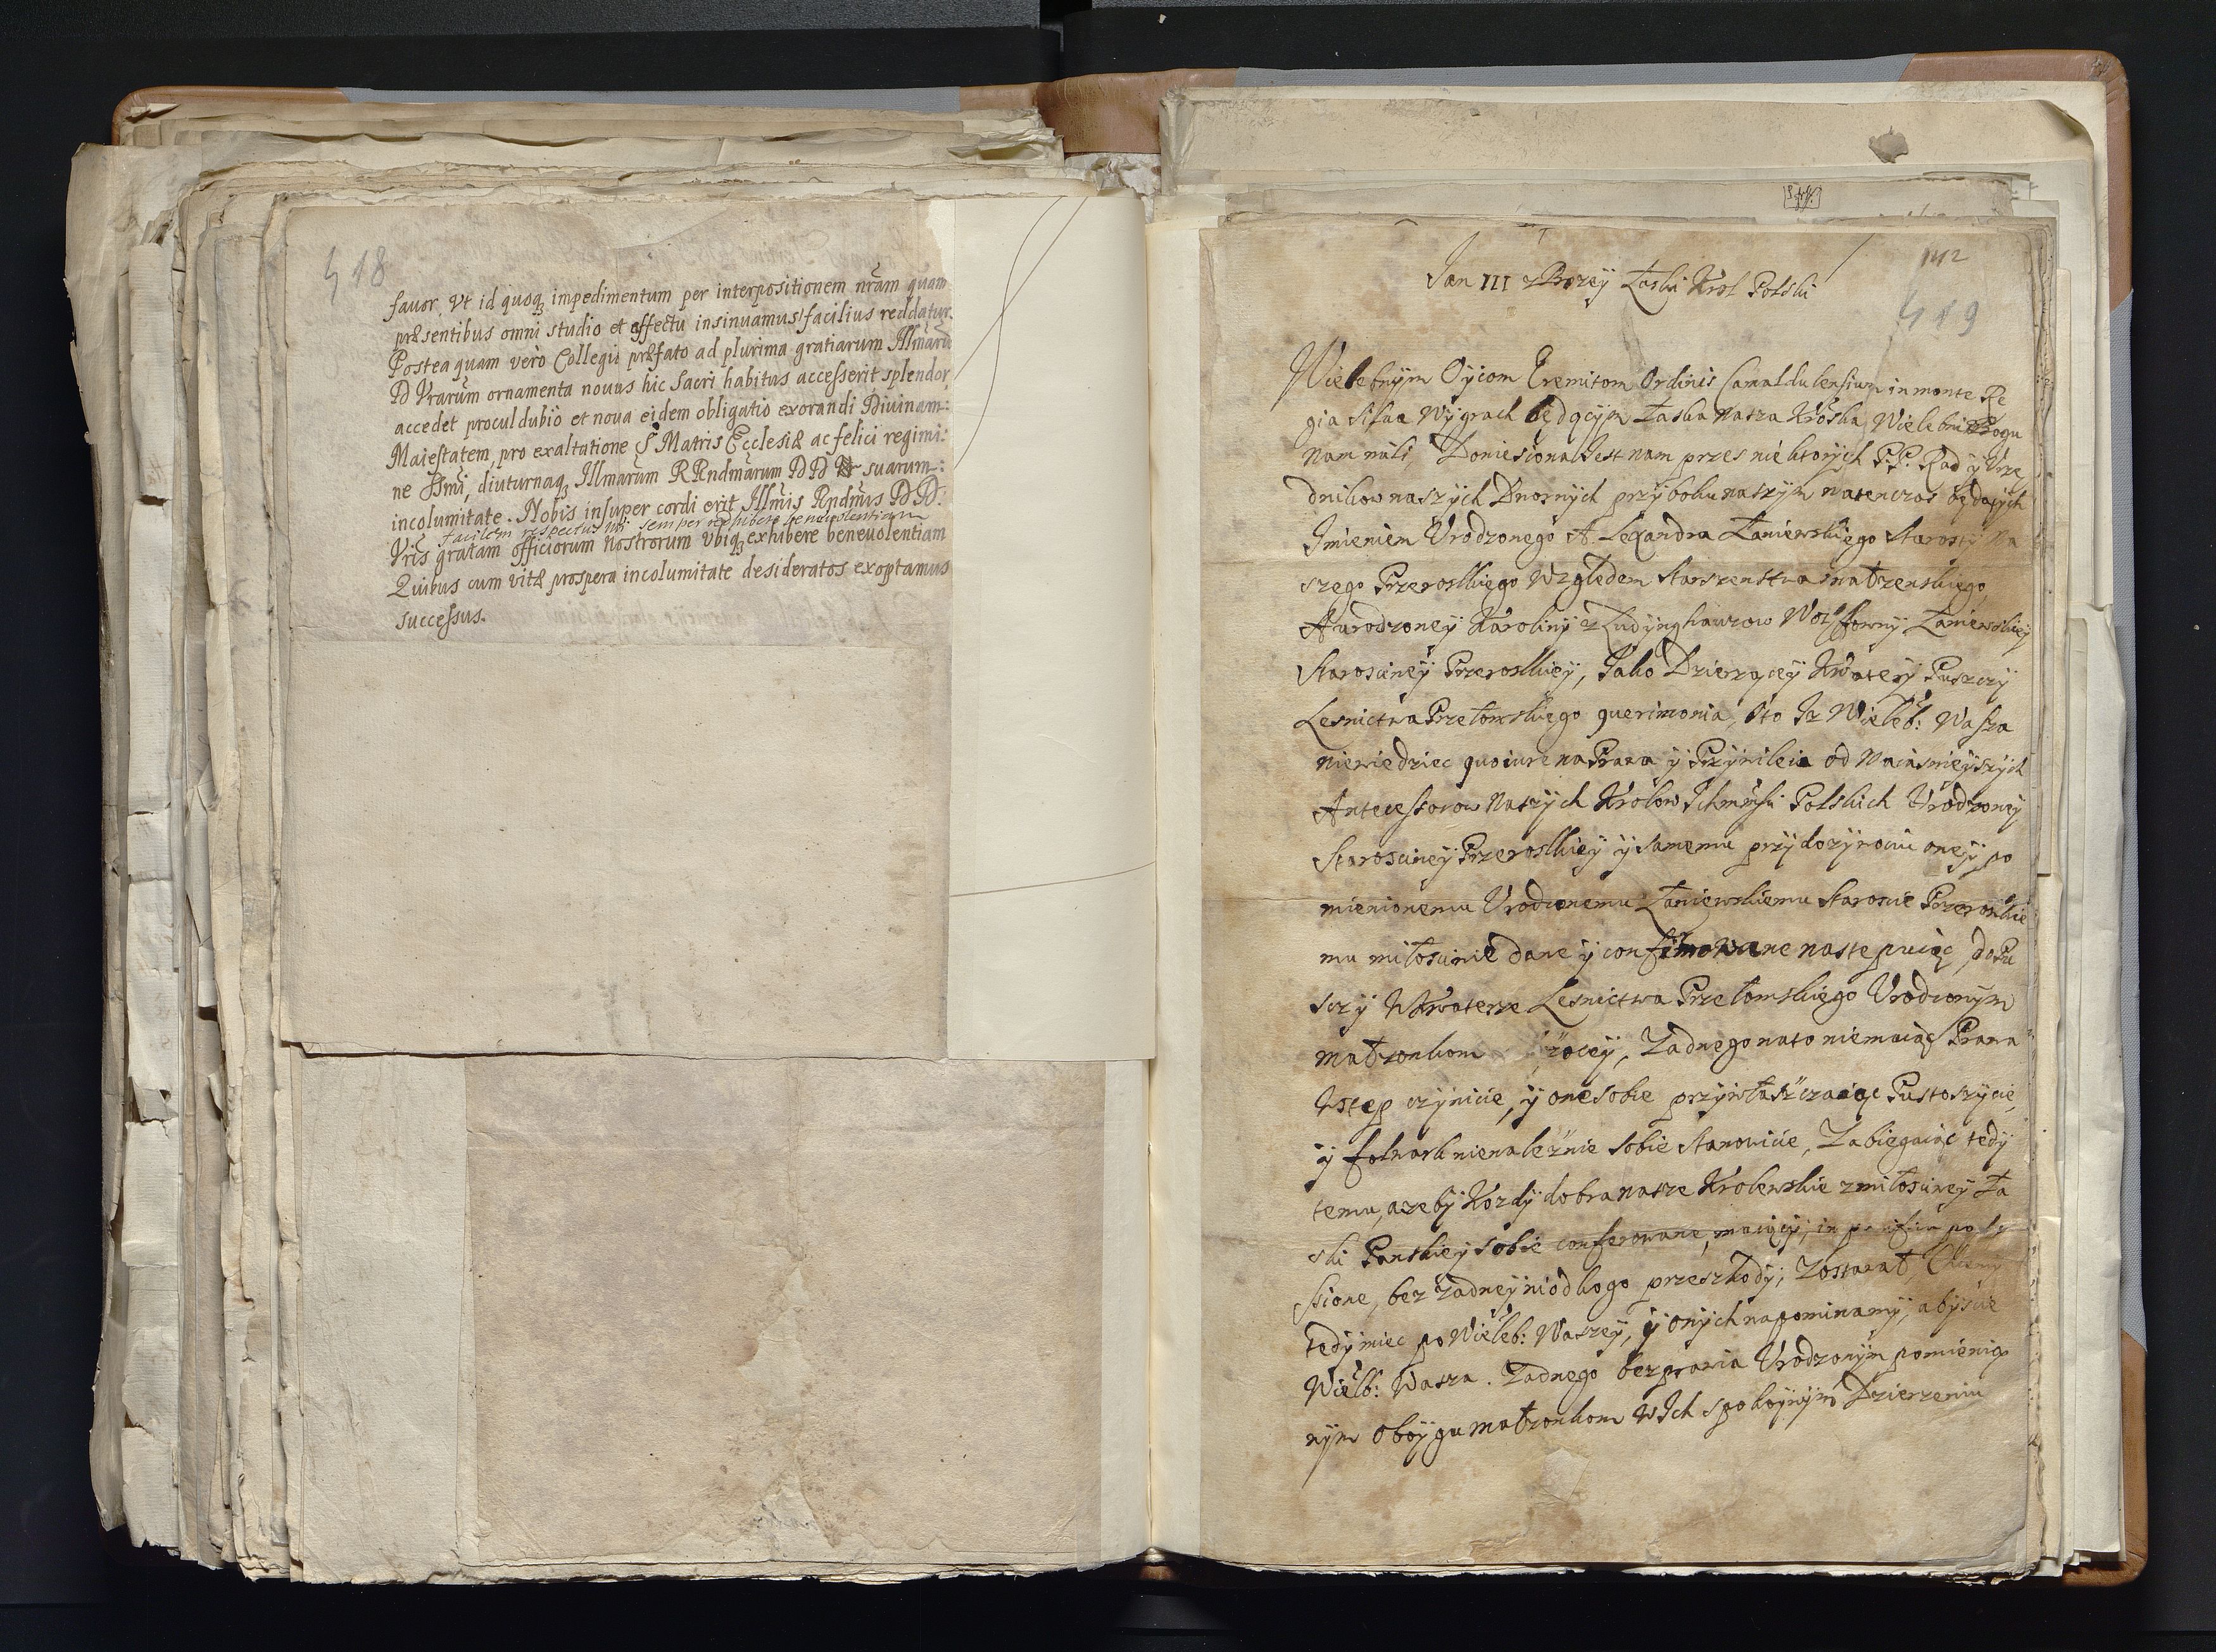 418
fauor, Vt id quoq; impedimentum per interpositionem nrãm quam
præsentibus omni studio et effectu insinuamus facilius reddatur.
Postea quam verò Collegii præfato ad plurima gratiarum Illmarũ
DD Vrarum ornamenta nouus hic Sacri habitus accesserit splendor,
accedet procul dubiò et noua eidem obligatio exorandi Diuinam:
Maiestatem, pro exaltatione S. Matris Ecclesiæ ac felici regimi:
ne SSmi, diuturnaq; Illmarum RRndmarum DD suarum:
incolumitate. Nobis insuper cordi erit Illmis Rndmis DD.
facilem semper benevolentiam
Vris gratam officiorum nostrorum vbiq; exhibere beneuolentiam
Quibus cum vitæ prospera incolumitate desideratos exoptamus
successus.
142
419
Jan III z Bozey Łaski Krol Polski
Wielebnym Oycom Eremitom Ordinis Camaldulensium in monte Re
gia Silua Wygrach będącym Łaska Nasza Krolska, Wielebni Bogu
Nam mili, Doniesiona Jest nam przes niektorych PP. Rad y Vrzę
dnikow naszych Dwornych przy boku naszym natenczas będących
Imieniem Vrodzonego Alexandra Łaniewskiego Starosty Na
szego Przeroslkiego Względem Starszenstwa małzenskiego,
A urodzoney Karoliny z Ludynghauzow Wolffowny Łaniewskiey
Starosciney Przeroslkiey, Jako Dzierzącey Kwatery Puszczy
Lesnictwa Przełomskiego querimonia, o to Iz Wieleb: Wasza
niewiedziec quo iure na Prawa y Przywileia od Naiasnieyszych
Antecessorow Naszych Krolow Ichmsci Polskich Vrodzoney
Starosciney Przeroslkiey y samemu przy dozywociu oney po
mienionemu Vrodzonemu Łaniewskiemu Staroscie Przeroslkie
mu miłosciwie dane y confirmowane następuiąc, do Pu
sczy W Kwaterze Lesnictwa Przełomskiego Vrodzonym
małzonkom zącey, Zadnego na to niemaiąc Prawa
Wstęp czynicie, y one sobie przywłaszczaiąc Pustoszycie,
y folwark nienaleznie sobie Stanowicie, Zabiegaiąc tedy
temu, azeby Kozdy dobra nasze Krolewskie z miłosciwey Ła
ski Panskiey sobie conferowane, maiący, in
ssione, bez zadney niodkogo przeszkody, Zostawał, Chcemy
tedy miec po Wieleb: Waszey, y onych napominamy, abyscie
Wielb: Wasza. Zadnego bezprawia Vrodzonym pomienio
nym oboygu małzonkom W Ich spokoynym Dzierzeniu